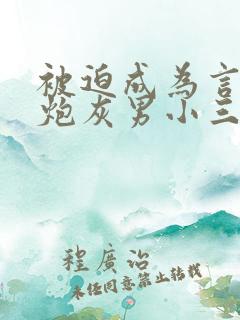 被迫成为言
炮灰男小三
程廣治
未经同意禁止转载